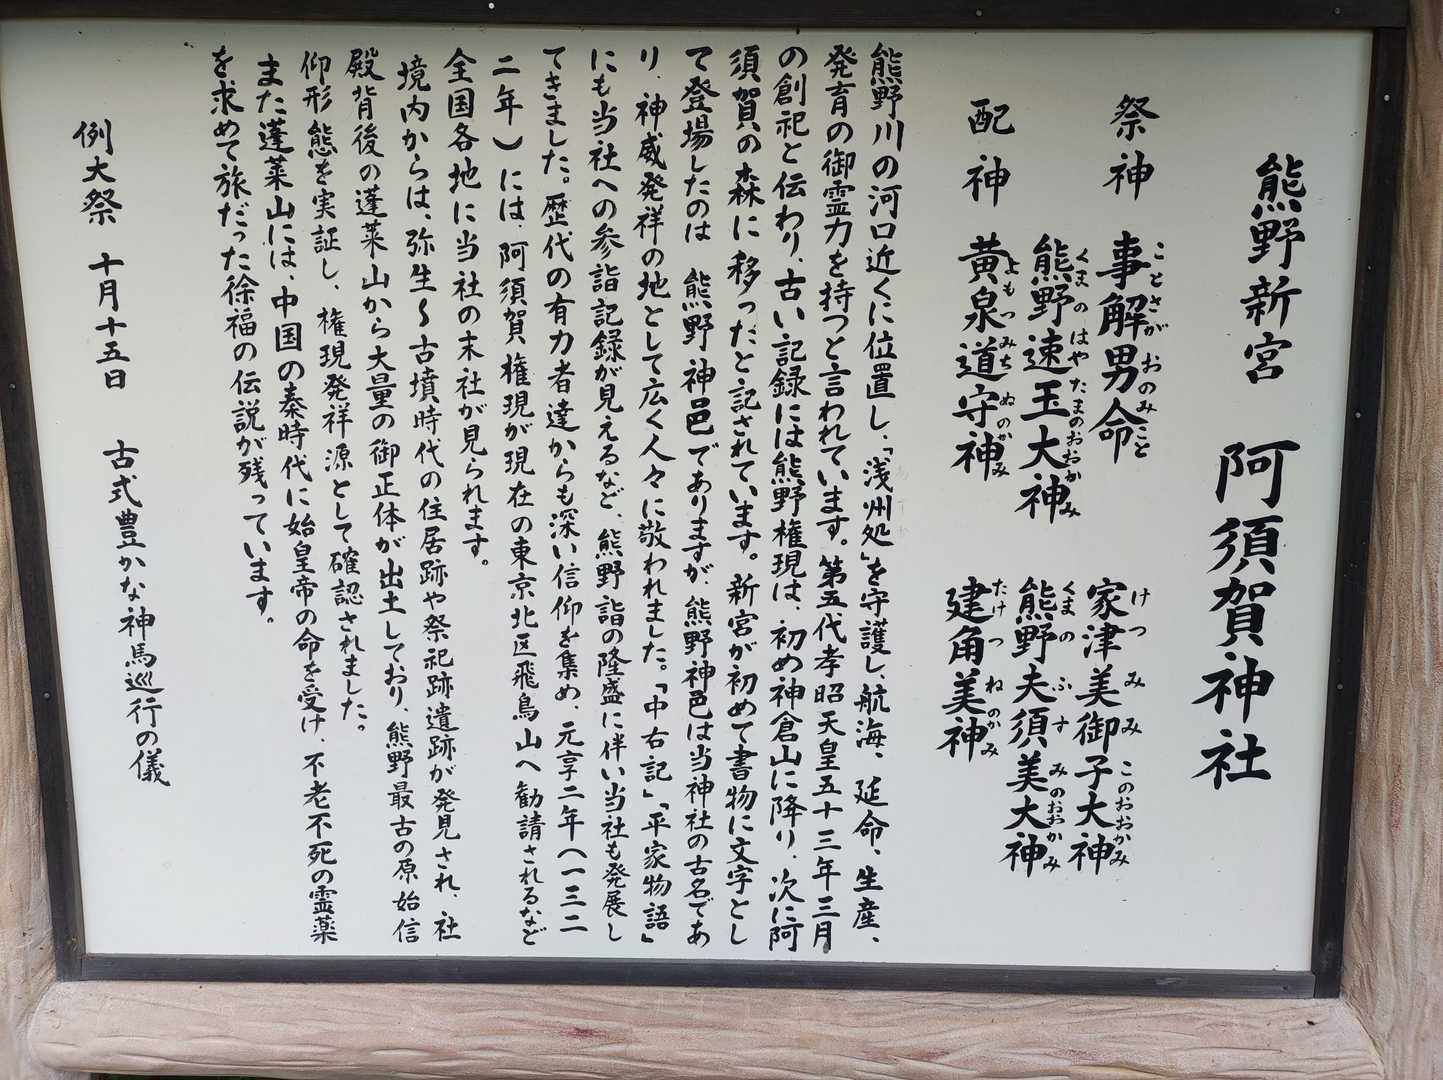 熊野新宮 阿須賀神社
祭神 事解男命 家津美御子大神
ことさがおのみこと けつみみこのおおかみ
熊野速玉大神 熊野夫須美大神
くまのはやたまのおおかみ くまのふすみのおおかみ
配神 黄泉道守神 建角美神
よもつみちぬのかみ たけつねのかみ
熊野川の河口近くに位置し、「浅州処」を守護し、航海、延命、生産、
発育の御霊力を持つと言われています。第五代孝昭天皇五十三年三月
の創祀と伝わり、古い記録には熊野権現は、初め神倉山に降り、次に阿
須賀の森に移ったと記されています。新宮が初めて書物に文字とし
て登場したのは 熊野神邑でありますが、熊野神邑は当神社の古名であ
り、神威発祥の地として広く人々に敬われました。「中右記」「平家物語」
にも当社への参詣記録が見えるなど、熊野詣の隆盛に伴い当社も発展し
てきました。歴代の有力者達からも深い信仰を集め、元享二年(一三二
二年)には、阿須賀権現が現在の東京北区飛鳥山へ勧請されるなど
全国各地に当社の末社が見られます。
境内からは、弥生~古墳時代の住居跡や祭祀跡遺跡が発見され、社
殿背後の蓬莱山から大量の御正体が出土しており、熊野最古の原始信
仰形態を実証し、権現発祥源として確認されました。
また蓬莱山には、中国の秦時代に始皇帝の命を受け、不老不死の霊薬
を求めて旅だった徐福の伝説が残っています。
例大祭 十月十五日 古式豊かな神馬巡行の儀